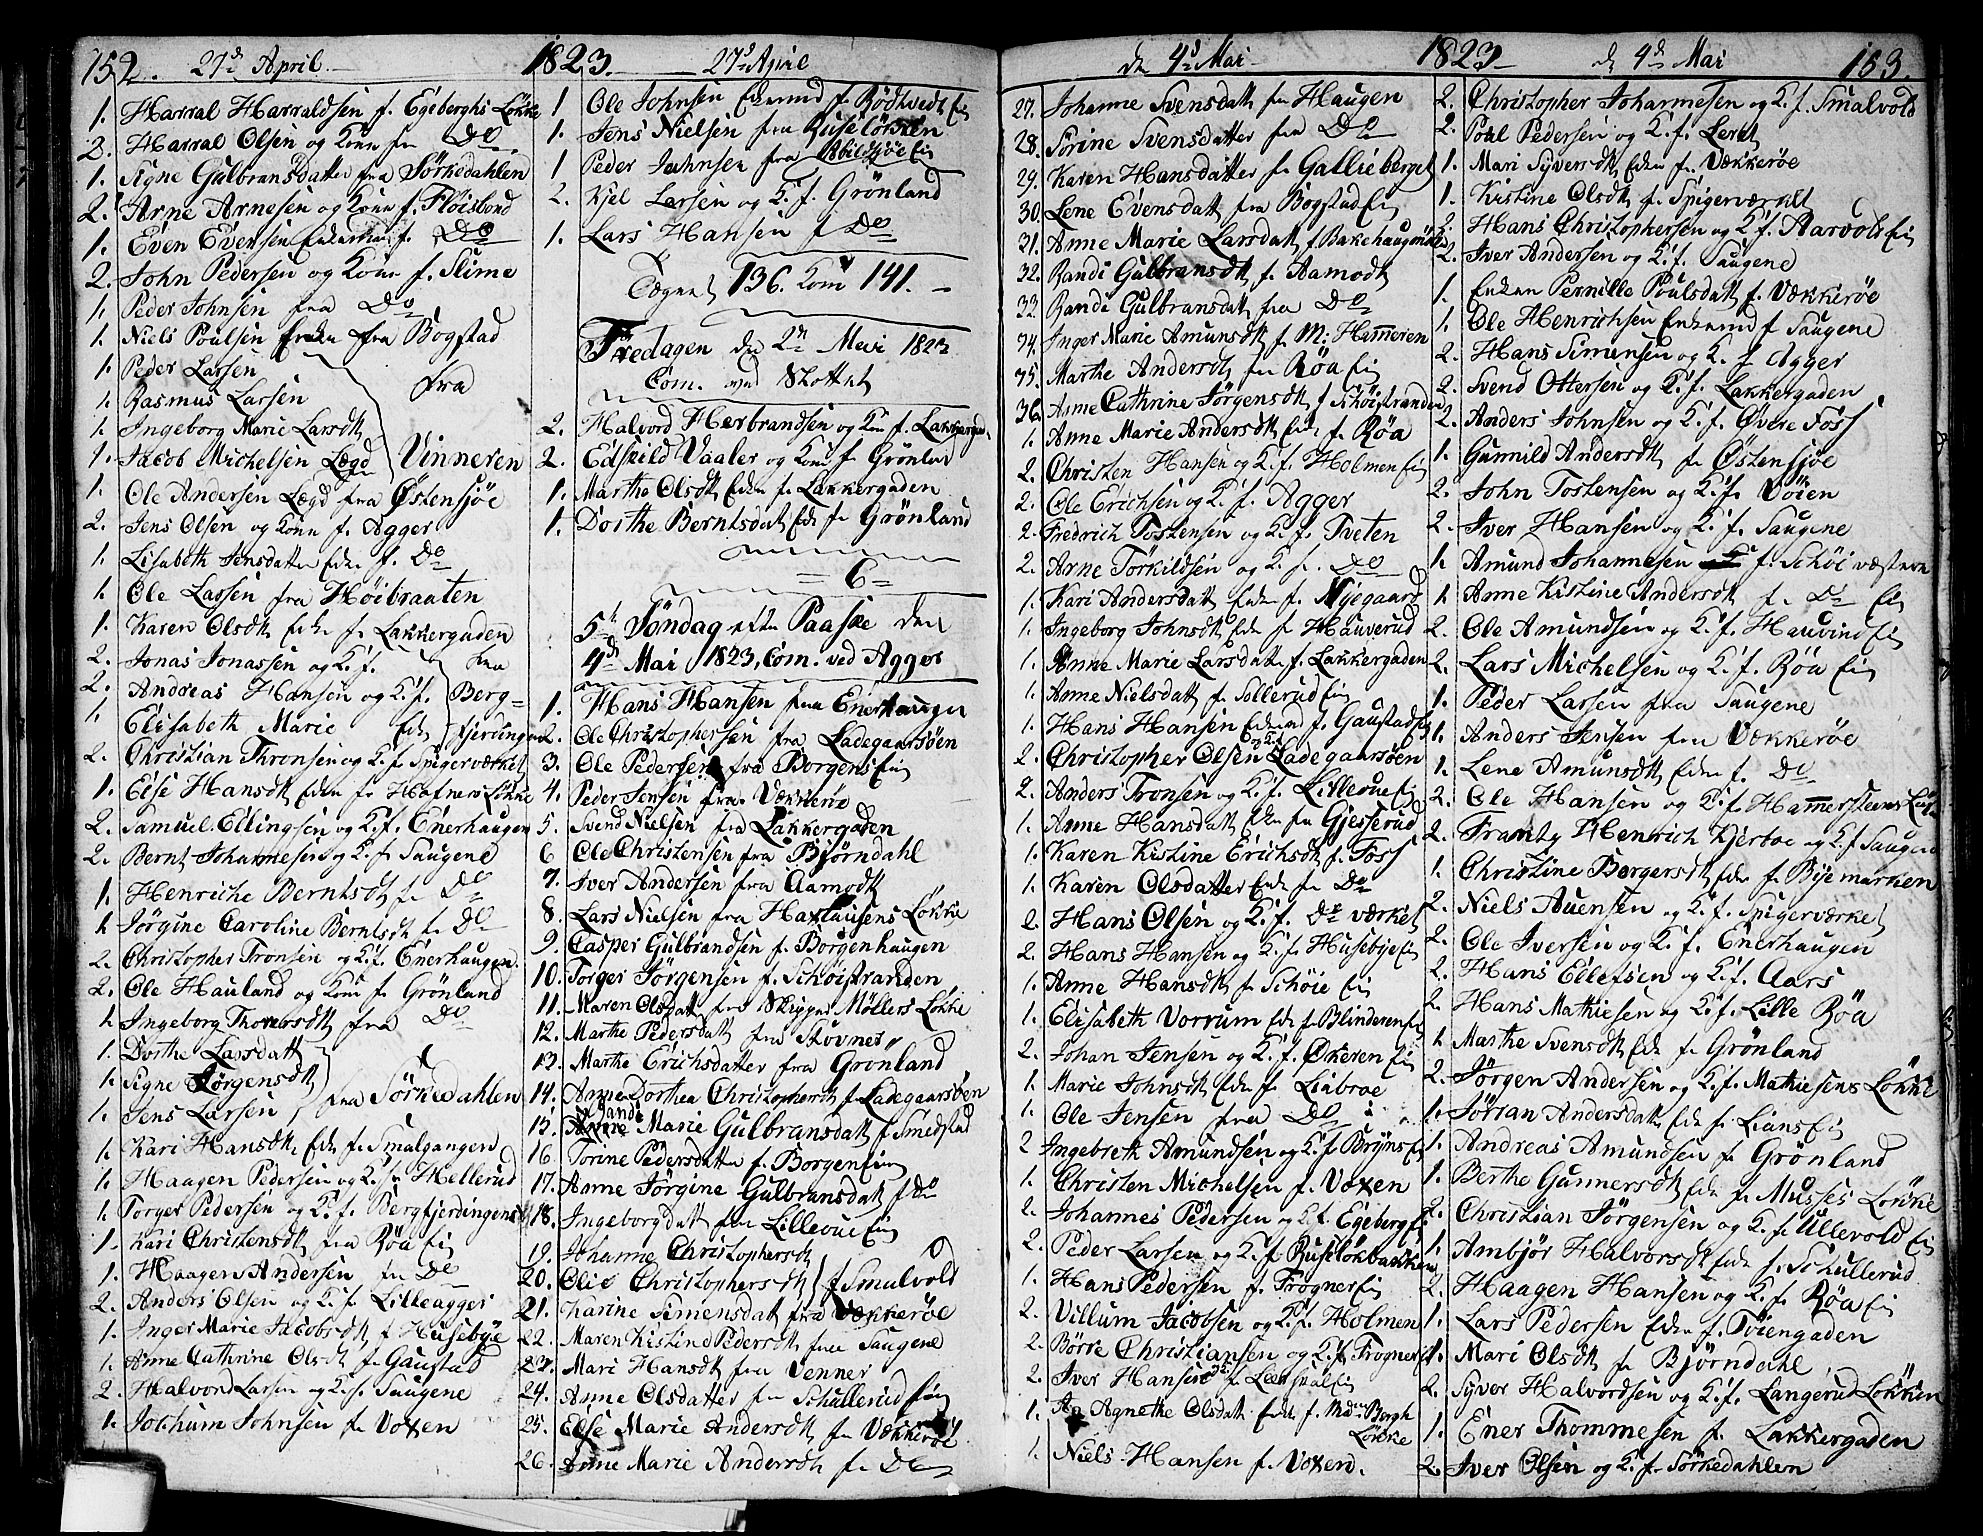 152. 27d April 1823. 27d April
1. Harral Harraldsen f. Egeberghs Løkke
2. Harral Olsen og Kone fra Do
1. Signe Gulbransdatter fra Sørkedahlen
2. Arne Arnesen og Kone f. Floisbond
1. Even Evensen Enkema f. Do
2. John Pedersen og Kone f. Slime
1. Peder Johnsen fra Do
1. Niels Poulsen fra Bogstad
1. Peder Larsen
1. Rasmus Larsen fra
1. Ingeborg Marie Larsdtr
1. Jacob Michelsen Lægd Vinneren
1. Ole Andersen Lægd fra Østensjøe
2. Jens Olsen og Kone f. Agger
1. Lisabeth Jensdatter Enke f. Do
1. Ole Larsen fra Høibraaten
1. Karen Olsdtr Enke f. Lakkergaden
2. Jonas Jonassen og K. f. fra
2. Andreas Hansen og K. f. Berg=
1. Elisabeth Marie Enke fjerdingen
2. Christian Thronsen og K. f. Spigerværket
1. Else Hansdtr Enke f. Hafners Løkke
2. Samuel Ellingsen og K. f. Enerhaugen
2. Bernt Johannesen og K. f. Saugene
1. Henriche Berntsdtr f. Do
1. Jørgine Caroline Berntsdtr f. Do
2. Christopher Tronsen og K. f. Enerhaugen.
2. Ole Hauland og Kone f. Grönland
1. Ingeborg Thoresdtr fra Do
1. Dorthe Larsdatt
1. Signe Jørgensdtr fra Sørkedahlen
1. Jens Larsen
1. Kari Hansdtr Enke f. Smalgangen
1. Haagen Pedersen og K. f. Hellerud
1. Torger Pedersen og K. f. Bergfjerdingen
1. Kari Christensdtr fra Røa Eie
1. Haagen Andersen fra Do
2. Anders Olsen og K. f. Lilleagger
1. Inger Marie Jacobsdtr f. Husebye
1. Anne Cathrine Olsdtr f. Gaustad
2. Halvord Larsen og K. f. Saugene
1. Jochum Johnsen f. Voxen
1 Ole Johnsen Enkemd f. Rödtvedt Eie
1. Jens Nielsen fra Ruseløkken
1 Peder Juhnsen fra Abildsøe Ei
2. Kjel Larsen og K. f. Grönland
1. Lars Hansen f Do
Tegnet 136. Kom 141.
Fredagen den 2n Mai 1823
Com. ved Slottet
2. Halvord Herbrandsen og Kone f. Lakkergad.
2. Edskild Vaaler og Kone f. Grönland
1. Marthe Olsdtr Enke f. Lakkergaden
1. Dorthe Berntsdat Enke f. Grönland
= 6 =
5te Søndag efter Paaske den
4d Mai 1823, Com. ved Agger
1. Hans Hansen fra Enerhaugen
2. Ole Christophersen fra Ladegaarsøen
3. Ole Pedersen fra Borgens Eie
4. Peder Jensen fra Vækkerøe
5. Svend Nielsen fra Lakkergaden
6 Ole Christensen fra Bjørndahl
7. Iver Andersen fra Aamodt
8. Lars Nielsen fra Haxtausens Løkke
9. Casper Gulbrandsen f. Borgenhaugen
10. Torger Jörgensen f. Schöistranden
11. Maren Olsdatt fra Skipper Møllers Løkke
12. Marthe Pedersdatt fra Stovner
13. Marthe Erichsdatter fra Grönland
14. Anne Dorthea Christophersdt f. Ladegaarsøen
15. Randi Marie Gulbransdatt f. Smedstad
16. Torine Pedersdatter f. Borgen Eie
17. Anne Jörgine Gulbransdatt f. Do
18. Ingeborgdatt fra Lillevue Eie
19. Johanne Christophersdt
20. Olie Christophersdt f. Smalvold
21. Karine Simensdatt fra Vækkerøe
22. Maren Kistine Pedersdt fra Saugene
23. Mari Hansdt fra Venner
24. Anne Olsdatter fra Schullerud Eie
25. Else Marie Andersdt fra Vækkerøe
26. Anne Marie Andersdt f. Do
de 4d Mai 1823 de 4de Mai 153.
27. Johanne Svensdatt fra Haugen
28. Sörine Svensdatter fra Do
29. Karen Hansdatter f. Gallieberget
30. Lene Evensdatt fra Bogstad Eie
31. Anne Marie Larsdatt f. Bakehaugen
32. Randi Gulbransdtr f. Aamodt
33. Randi Gulbransdatt fra Do
34. Inger Marie Amundsdt f. M: Hammeren
35. Marthe Andersdt fra Røa Eie
36. Anne Cathrine Jörgensdt f. Schöistranden
1. Anne Marie Andersdt Enke f. Røa
2. Christen Hansen og K. f. Holmen Ei
2. Ole Erichsen og K. f. Agger
2. Fredrich Tostensen og K. f. Tveten
2. Arne Törkildsen og K. f. Do
1. Kari Andersdatt Enke f. Nyegaard
1. Ingeborg Johnsdt Enke f. Hauverud
1. Anne Marie Larsdatter f. Lakkergaden
1. Anne Nielsdatt f. Sollerud Eie
1. Hans Hansen Enkem f. Gaustad Ei
2. Christopher Olsen og K. f. Ladegaarsöen
2. Anders Tronsen og K. f. Lillevue Ei
1. Anne Hansdatt Enke fra Gjesserud
1. Karen Kistine Erichsdt f. Foss
1. Karen Olsdatter Enke f. Do
2. Hans Olsen og K. f. Do værket
2. Hans Hansen og K. f. Husebye Ei
1. Anne Hansdt f. Schöie Ei
1. Elisabeth Vorrum Enke f. Blinderen Ei
2. Johan Jensen og K. f. Økeren Ei
1. Marie Johnsdt Enke f. Liabroe
1. Ole Jensen fra Do
2 Ingebreth Amundsen og K. f. Bryns Ei
1. Christen Michelsen f. Voxen
2. Johannes Pedersen og K. f. Egeberg Ei
2. Peder Larsen og K. f. Ruseløkbakken
1. Hans Pedersen f. Frogner Eie
2. Villum Jacobsen og K. f. Holmen
2. Börre Christiansen og K. f. Frogner Ei
2. Iver Hansen og K. f. Leersval Ei
1. Agnethe Olsdatt Enke f. Mdm Bergh
Løkke
1. Niels Hansen f. Voxen.
2. Christopher Johannesen og K. f. Smalvold
2. Poul Pedersen og K. f. Leret
1. Mari Syversdt Enke f. Vækkerøe
1. Kistine Olsdt f. Spigerværket
2. Hans Christophersen og K. f. Aarvold Ei
2. Iver Andersen og K. f. Saugene
1. Enken Pernille Poulsdatt f. Vækkerøe
1. Ole Henrichsen Enkemd f. Saugene
2. Hans Simensen og K. f Agger
2. Svend Ottersen og K. f. Lakkergaden
2. Anders Johnsen og K. f. Øvere Foss
1. Gunnild Andersdt f. Østensjøe
2. John Tostensen og K. f. Vöien
2. Iver Hansen og K. f. Saugene
1. Amund Johannesen f. Schöi væstern
1. Anne Kistine Andersdt f. Do Ei
2. Ole Amundsen og K. f. Hauvind Ei
2. Lars Michelsen og K. f. Røa Ei
1. Peder Larsen fra Saugene
1. Anders Jensen fra Vækkerøe
1. Lene Amunsdt Enke f. Do
2. Ole Hansen og K. f. Hammersteens Løk
2. Frantz Henrich Kjerboe og K. f Saugene
1. Christine Borgersdt Enke f. Byemarken
2. Niels Auensen og K. f. Spigerværket
2. Ole Iversen og K. f. Enerhaugen
2. Hans Ellefsen og K. f. Aars
2. Hans Mathiesen og K. f. Lille Røa
1. Marthe Svensdt Enke f. Grönland
2. Jørgen Andersen og K. f. Mathiesens Løkke
1. Jörian Andersdatt Enke f. Lians Ei
1. Andreas Amundsen f. Grönland
1. Berthe Gunnersdt Enke f. Musses Løkke
2. Christian Jørgensen og K. f. Ullevold Ei
1. Ambjør Halvorsdt Enke f. Schullerud
2. Haagen Hansen og K. f. Røa Ei
1. Lars Pedersen Enkem f. Töiengaden
1. Mari Olsdt f. Bjørndahl
2. Syver Halvordsen og K. f. Langerud Løkken
1. Ener Thommesen f. Lakkergaden
2. Iver Olsen og K. f. Sørkedahlen